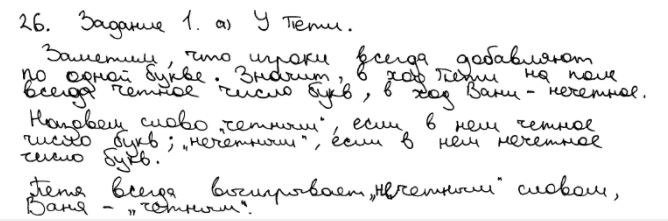 26. Задание 1. а) У Пети.
Заметим, что игроки всегда добавляют
по одной букве. Значит, в ход Пети на поле
всегда четное число букв, в ход Вани - нечетное.
Назовем слово "четным", если в нем четное
число букв; "нечетным", если в нем нечетное
число букв.
Петя всегда выигрывает "нечетным" словом,
Ваня - "четным".